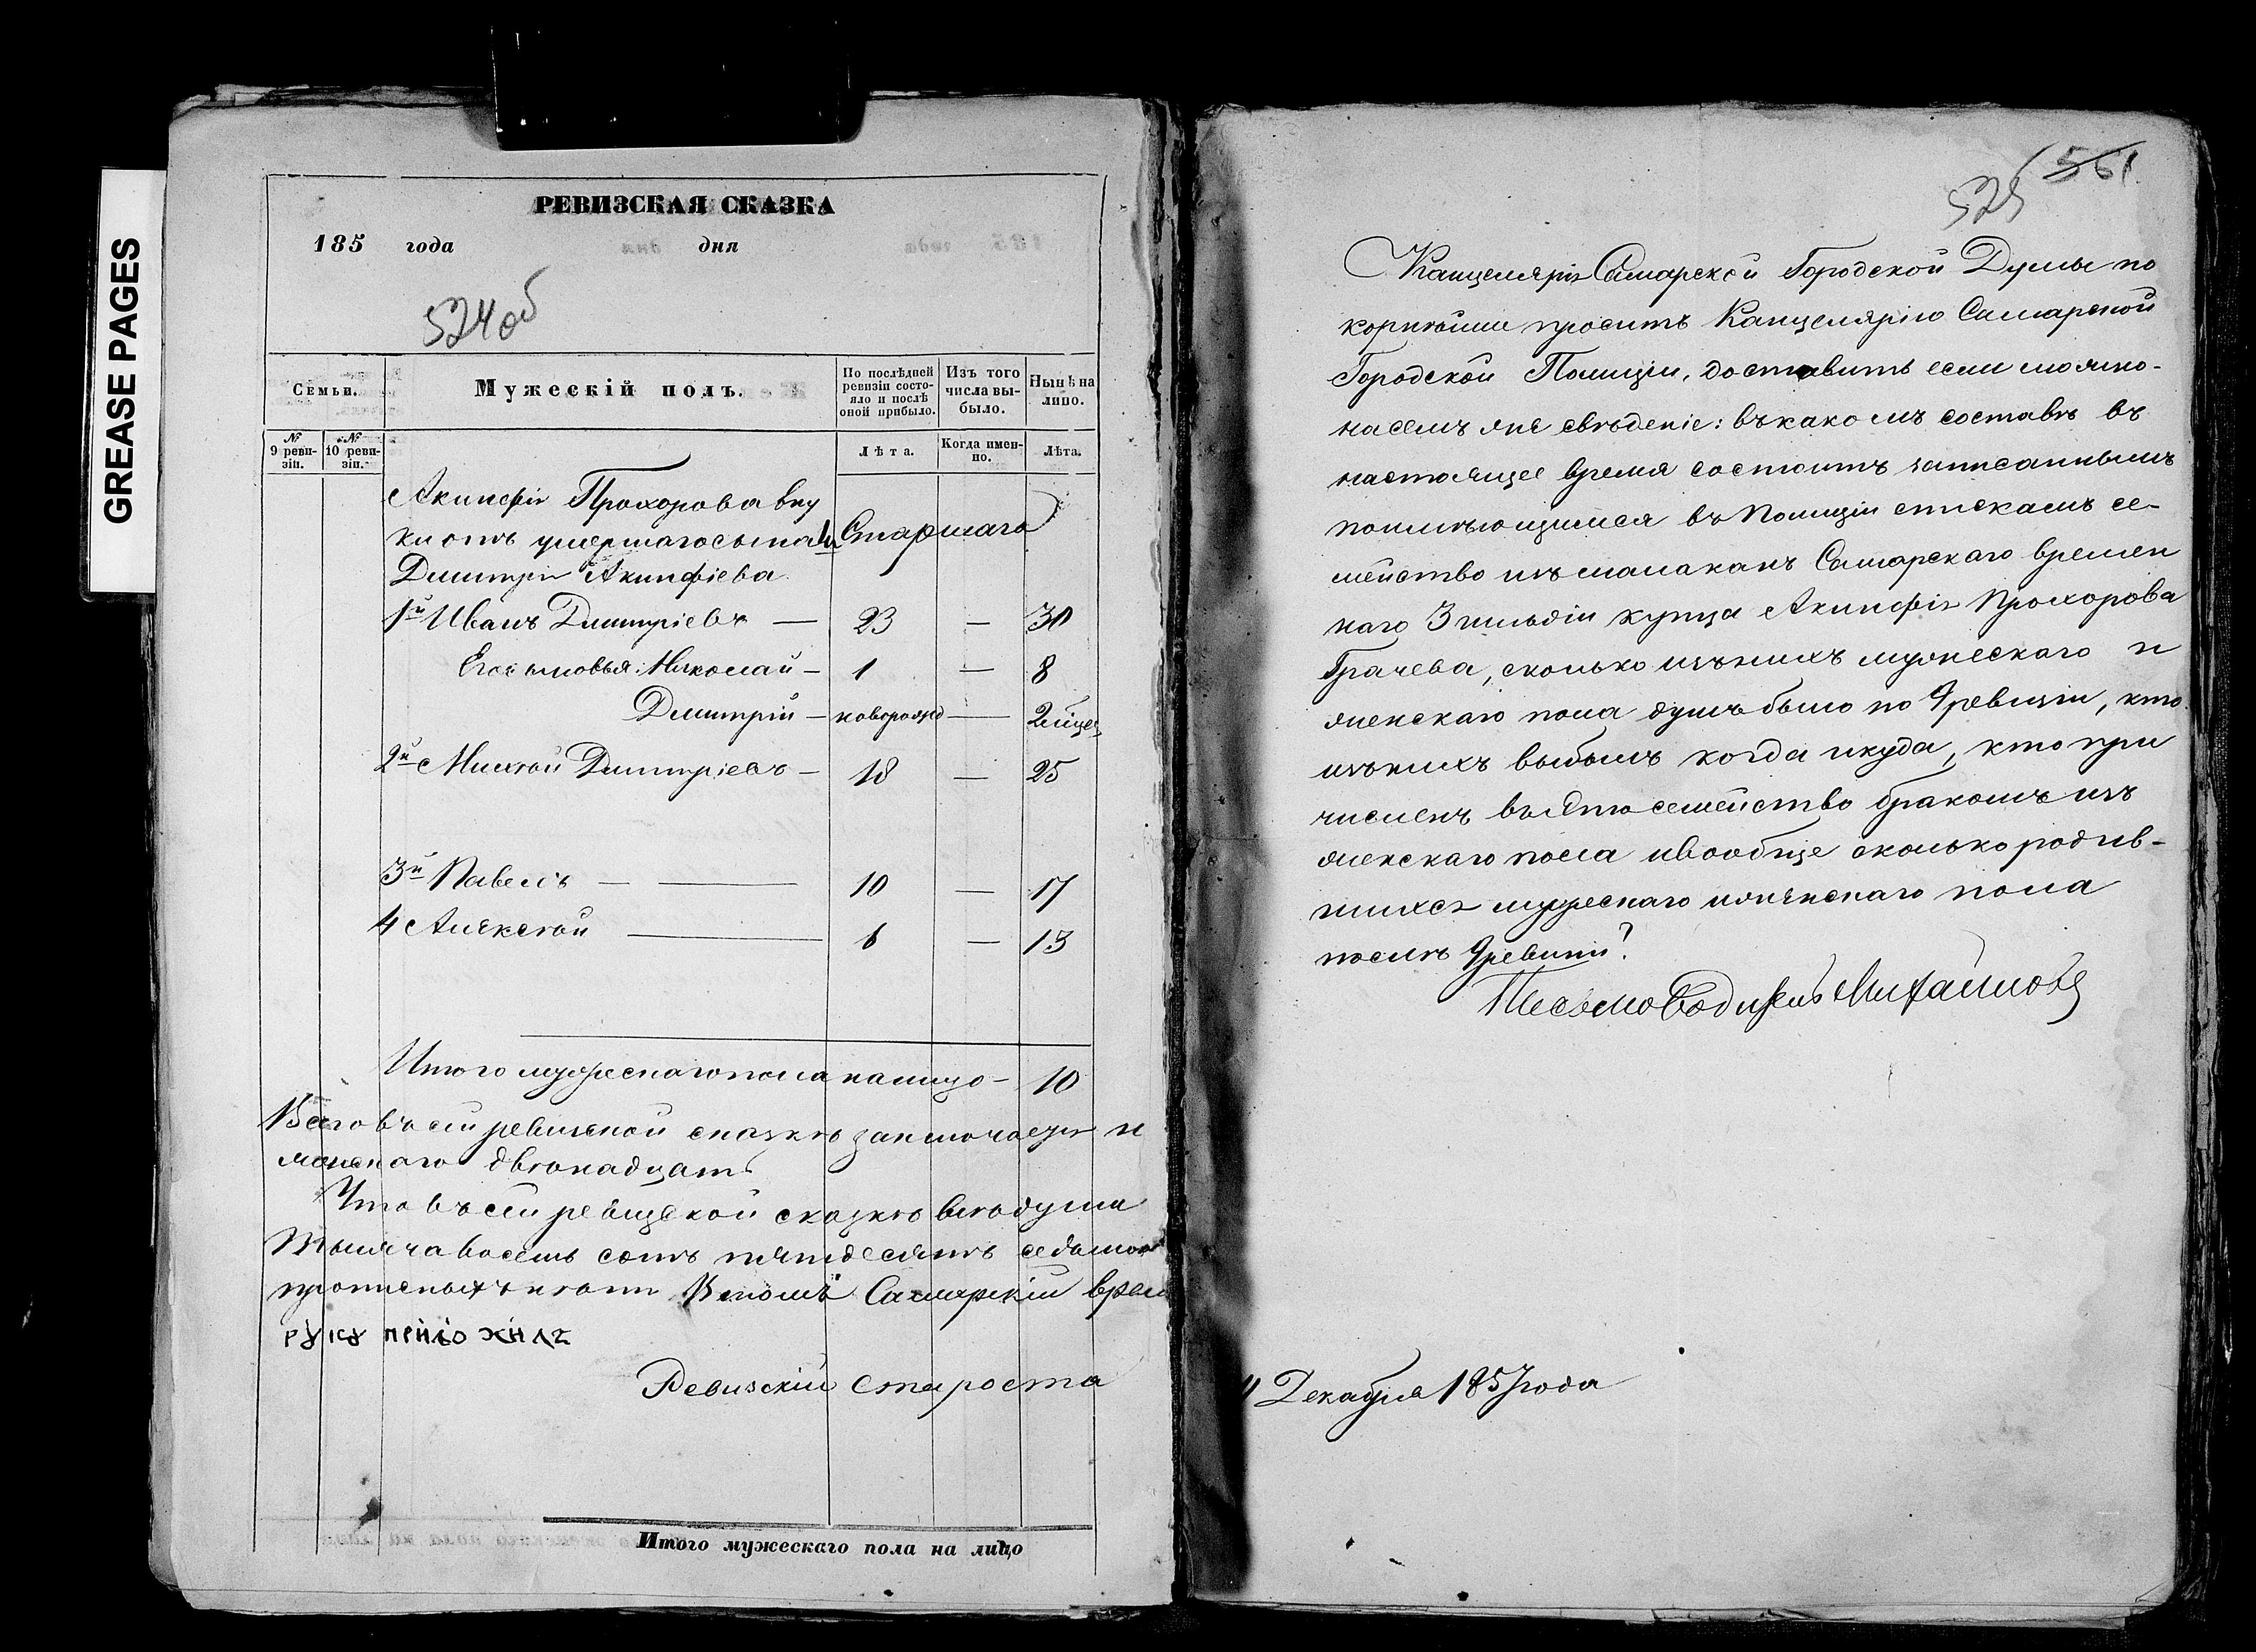 GREASE PAGES
РЕВИЗСКАЯ СКАЗКА
185 года дня
524 об
Семьи.
Мужескій полъ.
По послѣдней ревизіи состояло и послѣ оной прибыло.
Изъ того числа выбыло.
Нынѣ на лицо.
№ 9 ревизіи.
№ 10 ревизіи.
Лѣта.
Когда именно.
Лѣта.
Акинфія Прохорова вну
ки отъ умершаго сына Старшаго
Димитрія Акинфіева
1й Иванъ Димитріевъ — 23 — 30
Его сыновья: Николай — 1 — 8
Димитрій — новорожд — 2 мѣсец
2й Михай Димитріевъ — 18 — 25
3й Павелъ — 10 — 17
4 Алексѣй — 6 — 13
Итого мужескаго пола на лицо — 10
Всего въ сей ревизской сказкѣ заключается и
женскаго двенадцать
Что въ сей ревизской сказкѣ всѣ души
тысяча восемь сотъ пятдесятъ седьмой
прописныхъ нѣтъ В томъ Самарскій врем
рꙋкꙋ приложилъ
Ревизскій староста
Итого мужескаго пола на лицо
525 561
Канцелярія Самарской Городской Думы по
корнѣйше проситъ Канцелярію Самарской
Городской Полиціи, доставить если можно-
на семъ же свѣденіе: въ какомъ составѣ въ
настоящее время состоитъ записаннымъ
по имѣющимся въ Полиціи спискамъ се-
мейство изъ малаканъ Самарскаго времен
наго 3 гильдіи купца Акинфія Прохорова
Грачева, сколько изъ нихъ мужескаго и
женскаго пола душъ было по 9 ревизіи, кто
изъ нихъ выбылъ когда и куда, кто при
численъ въ это семейство бракомъ изъ
женскаго пола и вообще сколько родив-
шихся мужескаго и женскаго пола
послѣ 9 ревизіи?
Письмоводитель Михайловъ
4 Декабря 1857 года